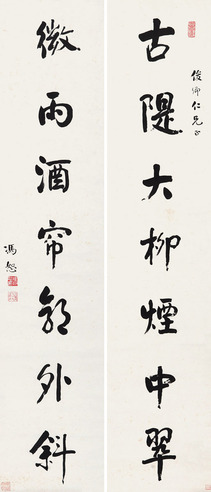 古隄大柳煙中翠
俊卿仁兄正
微雨酒帘郭外斜
馮恕